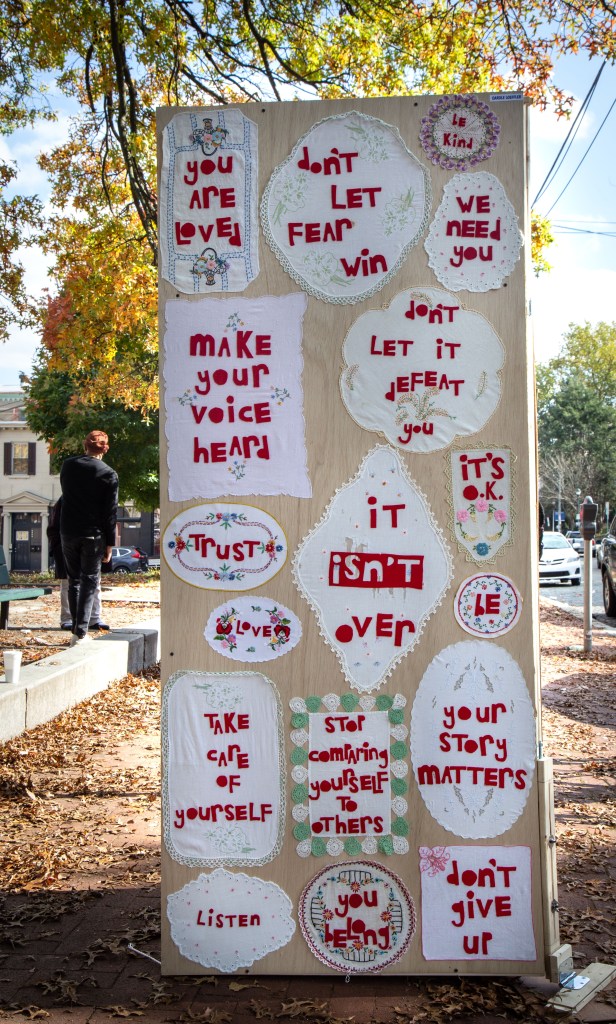 you
ARE
LOVEd
don't
LET
FEAR
win
be
Kind
WE
NEEd
you
MAKE
your
voicE
hEARd
don't
LET iT
dEFEAT
you
iT'S
O.K.
TRUST
iT
iSN'T
oVER
bE
LOVE
TAKE
CARE
OF
yourSELF
STOP
compARing
yoursELF
To
oThERS
youR
SToRy
MATTERS
LiSTEN
you
bELong
don'T
givE
up